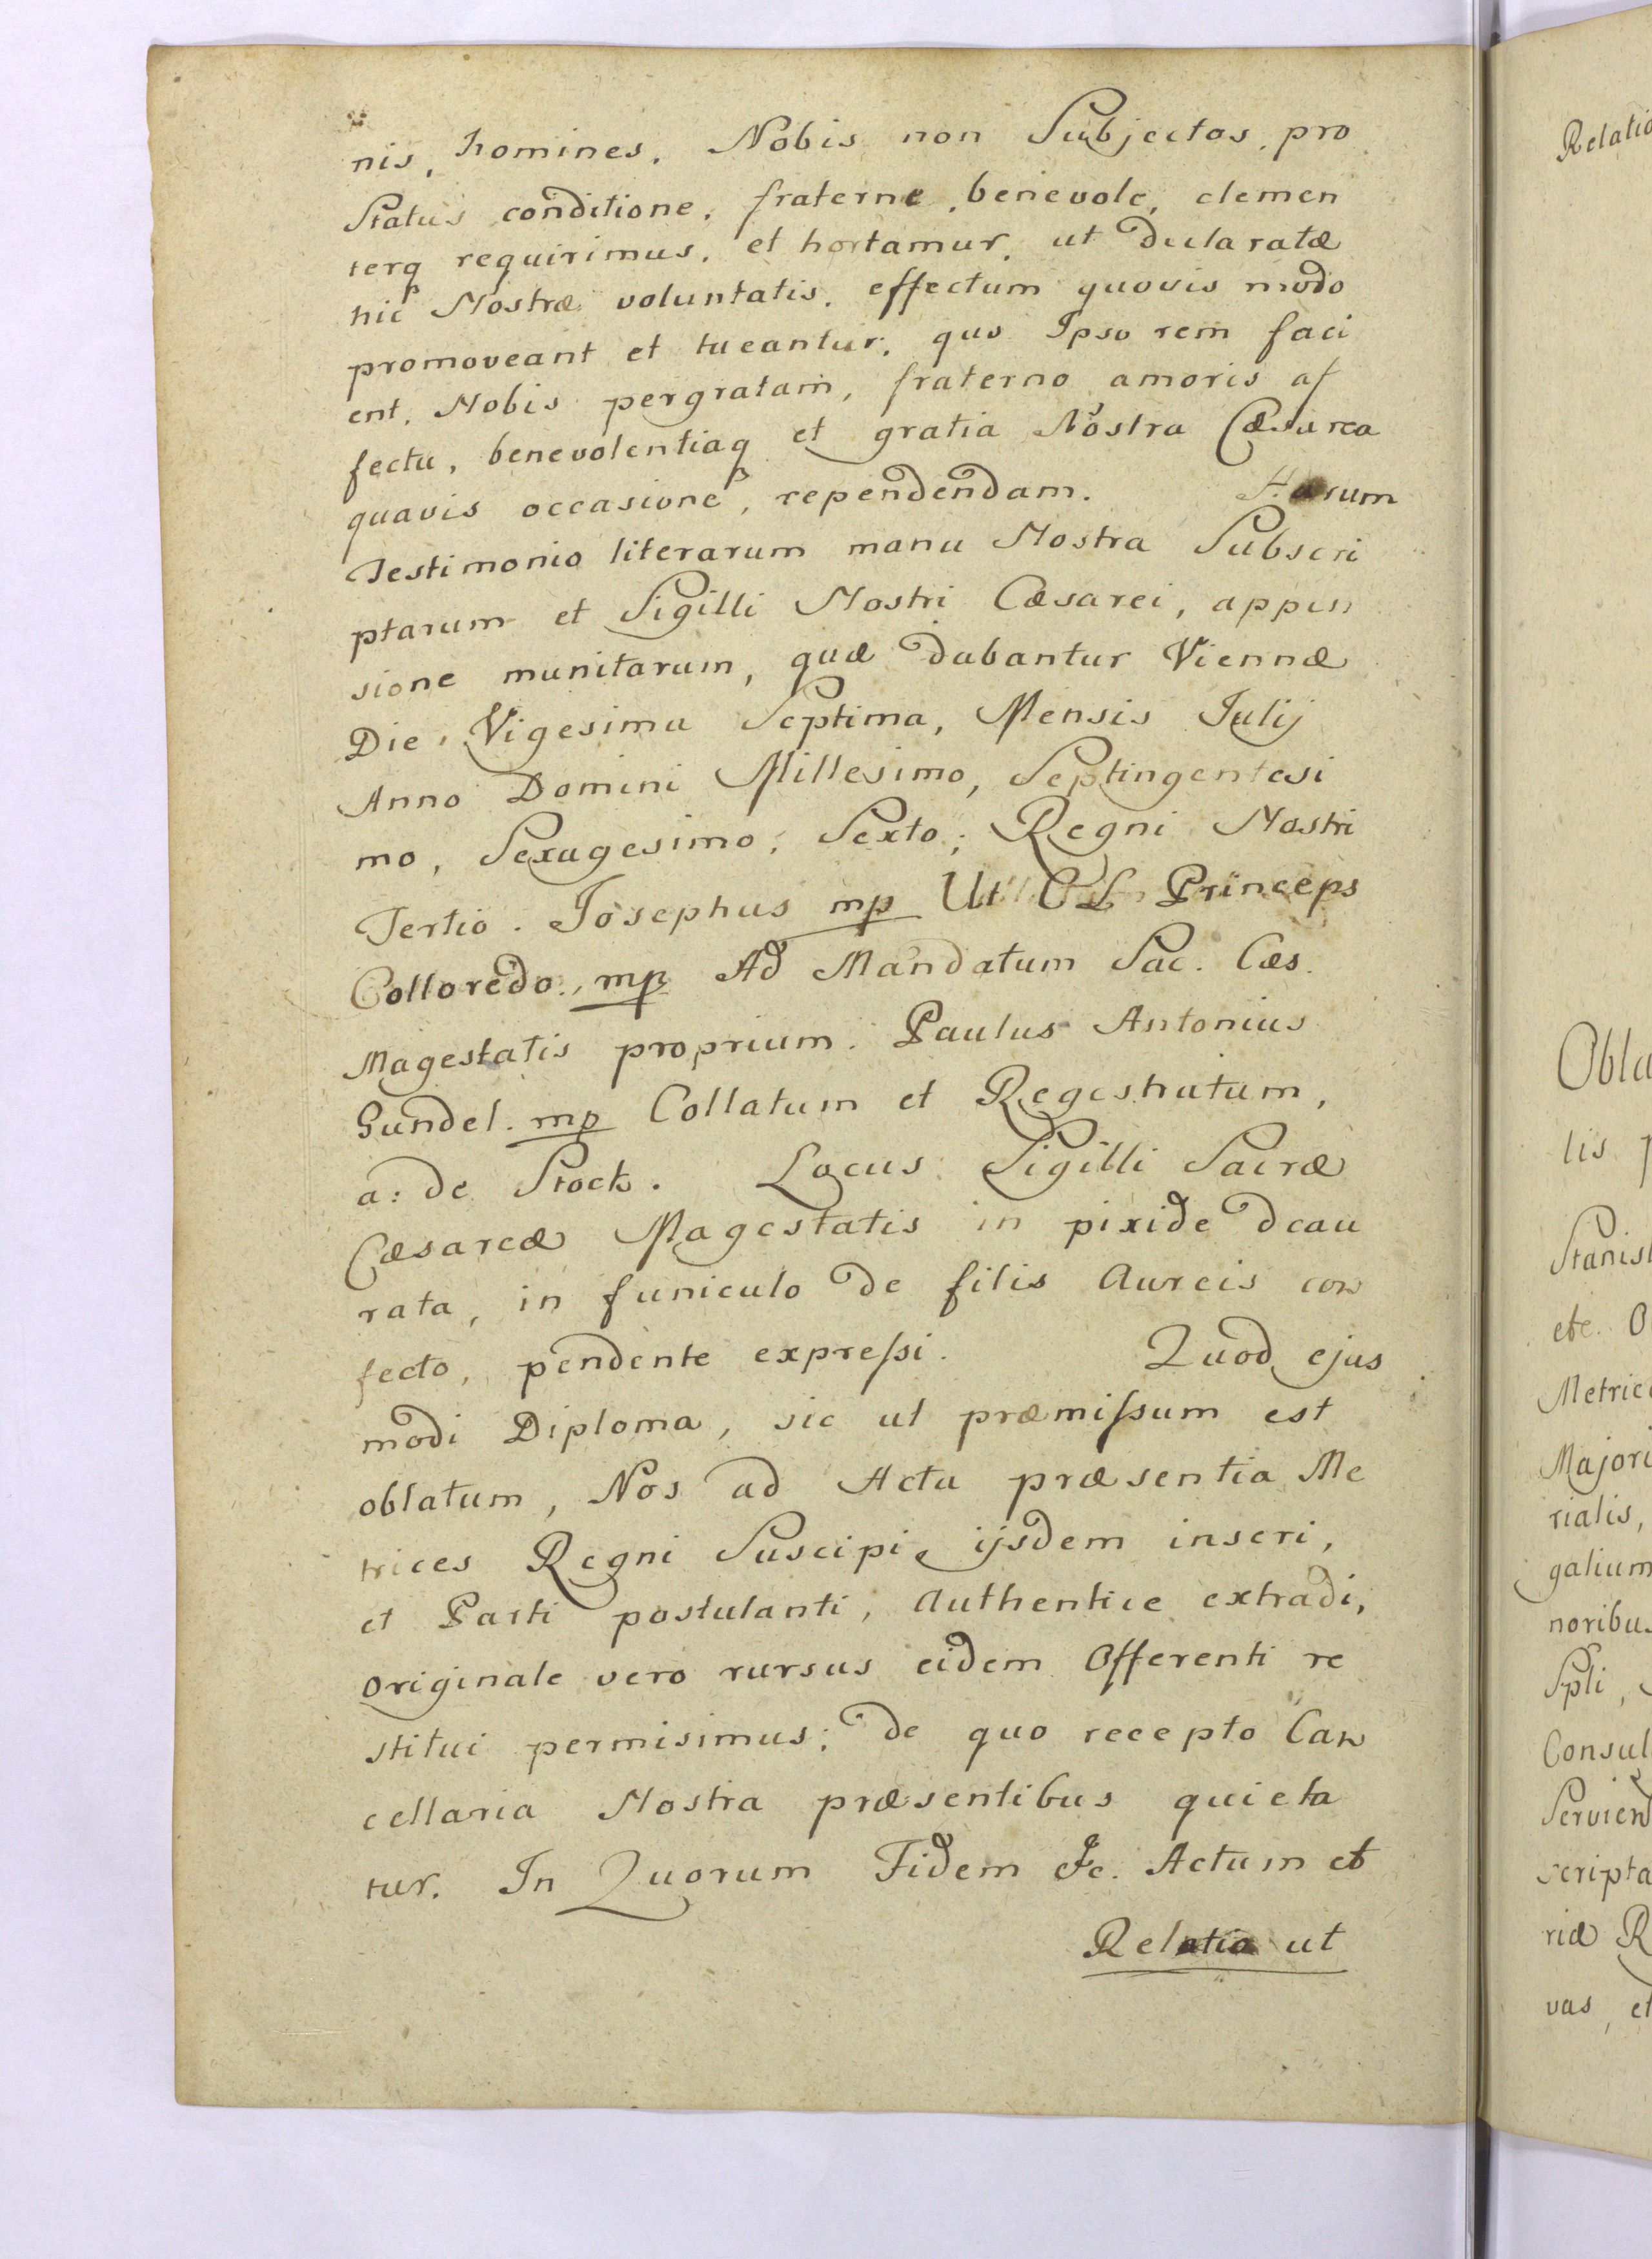 nis, homines, Nobis non Subjectos, pro
Status conditione, fraterne, benevole, clemen
terq requirimus, et hortamur, ut declaratæ
hic Nostræ voluntatis, effectum quovis modo
promoveant et tueantur, quo Ipso rem faci
ent, Nobis pergratam, fraterno amoris af
fectu, benevolentiaq et gratia Nostra Cæsarea
quavis occasione, rependendam. Harum
Testimonio literarum manu Nostra Subscri
ptarum et Sigilli Nostri Cæsarei, appen
sione munitarum, quæ dabantur Viennæ
Die Vigesima Septima, Mensis Julij
Anno Domini Millesimo, Septingentesi
mo, Sexagesimo, Sexto; Regni Nostri
Tertio. Josephus mp Ut Princeps
Colloredo. mp Ad Mandatum Sac. Cæs.
Magestatis proprium. Paulus Antonius
Gundel. mp Collatum et Regestratum,
a: de Stock. Locus Sigilli Sacræ
Cæsareæ Magestatis in pixide deau
rata, in funiculo de filis Aureis con
fecto, pendente expressi. Quod ejus
modi Diploma, sic ut præmissum est
oblatum, Nos ad Acta præsentia Me
trices Regni Suscipi, ijsdem inseri,
et Parti postulanti, Authentice extradi,
Originale vero rursus eidem Offerenti re
stitui permisimus; de quo recepto Can
cellaria Nostra præsentibus quieta
tur. In Quorum Fidem &c. Actum et
Relatio ut
Relatio
Obla
lis
Stanisl
etc. O
Metric
Majori
rialis,
galium
noribus
Spli,
Consul
Servien
scripta
riæ R
vas, et